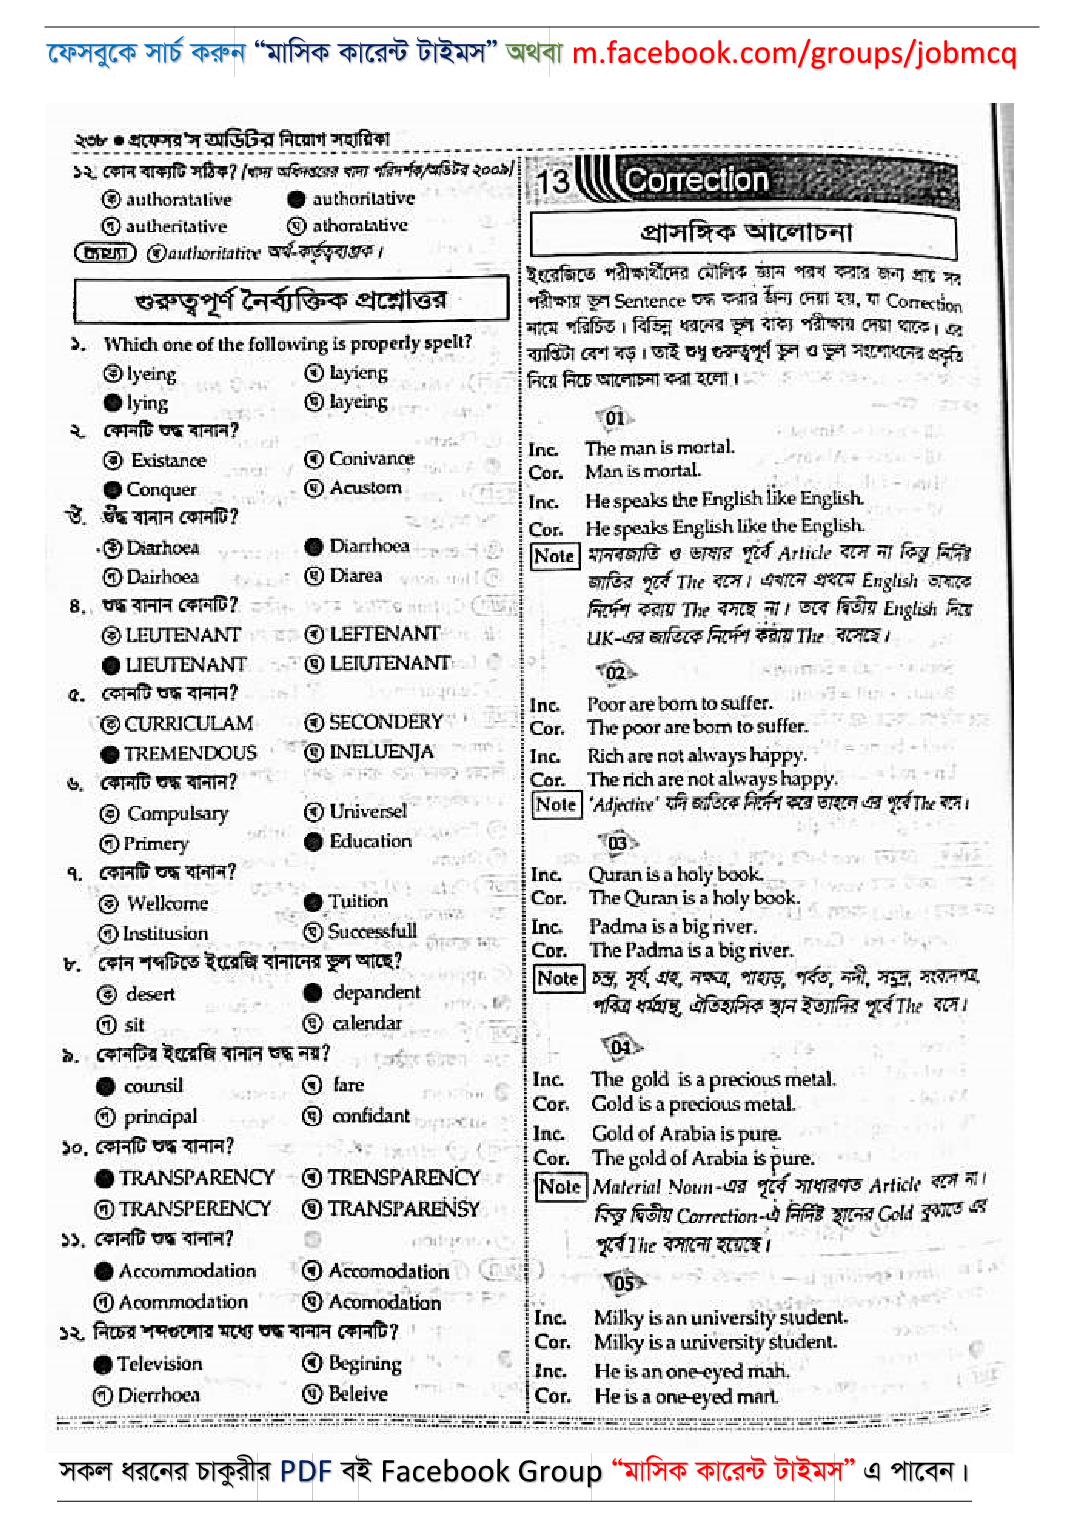 ফেসবুকে সার্চ করুন “মাসিক কারেন্ট টাইমস” অথবা m.facebook.com/groups/jobmcq
২৩৮ ● প্রফেসর'স অডিটর নিয়োগ সহায়িকা
১২. কোন বাক্যটি সঠিক? [খাদ্য অধিদপ্তরের খাদ্য পরিদর্শক/অডিটর ২০০৯]
ক authoratative ● authoritative
গ autheritative ঘ athoratative
ব্যাখ্যা খ authoritative অর্থ-কর্তৃত্বব্যঞ্জক।
গুরুত্বপূর্ণ নৈর্ব্যক্তিক প্রশ্নোত্তর
১. Which one of the following is properly spelt?
ক lyeing খ layieng
● lying ঘ layeing
২. কোনটি শুদ্ধ বানান?
ক Existance খ Conivance
● Conquer ঘ Acustom
৩. শুদ্ধ বানান কোনটি?
ক Diarhoea ● Diarrhoea
গ Dairhoea ঘ Diarea
৪. শুদ্ধ বানান কোনটি?
ক LEUTENANT খ LEFTENANT
● LIEUTENANT ঘ LEIUTENANT
৫. কোনটি শুদ্ধ বানান?
ক CURRICULAM খ SECONDERY
● TREMENDOUS ঘ INELUENJA
৬. কোনটি শুদ্ধ বানান?
ক Compulsary খ Universel
গ Primery ● Education
৭. কোনটি শুদ্ধ বানান?
ক Wellcome ● Tuition
গ Institusion ঘ Successfull
৮. কোন শব্দটিতে ইংরেজি বানানের ভুল আছে?
ক desert ● depandent
গ sit ঘ calendar
৯. কোনটির ইংরেজি বানান শুদ্ধ নয়?
● counsil খ fare
গ principal ঘ confidant
১০. কোনটি শুদ্ধ বানান?
● TRANSPARENCY খ TRENSPARENCY
গ TRANSPERENCY ঘ TRANSPARENSY
১১. কোনটি শুদ্ধ বানান?
● Accommodation খ Accomodation
গ Acommodation ঘ Acomodation
১২. নিচের শব্দগুলোর মধ্যে শুদ্ধ বানান কোনটি?
● Television খ Begining
গ Dierrhoea ঘ Beleive
13 Correction
প্রাসঙ্গিক আলোচনা
ইংরেজিতে পরীক্ষার্থীদের মৌলিক জ্ঞান পরখ করার জন্য প্রায় সব
পরীক্ষায় ভুল Sentence শুদ্ধ করার জন্য দেয়া হয়, যা Correction
নামে পরিচিত। বিভিন্ন ধরনের ভুল বাক্য পরীক্ষায় দেয়া থাকে। এর
ব্যাপ্তিটা বেশ বড়। তাই শুধু গুরুত্বপূর্ণ ভুল ও ভুল সংশোধনের প্রকৃতি
নিয়ে নিচে আলোচনা করা হলো।
01
Inc. The man is mortal.
Cor. Man is mortal.
Inc. He speaks the English like English.
Cor. He speaks English like the English.
Note মানবজাতি ও ভাষার পূর্বে Article বসে না কিন্তু নির্দিষ্ট
জাতির পূর্বে The বসে। এখানে প্রথমে English ভাষাকে
নির্দেশ করায় The বসছে না। তবে দ্বিতীয় English দিয়ে
UK-এর জাতিকে নির্দেশ করায় The বসেছে।
02
Inc. Poor are born to suffer.
Cor. The poor are born to suffer.
Inc. Rich are not always happy.
Cor. The rich are not always happy.
Note 'Adjective' যদি জাতিকে নির্দেশ করে তাহলে এর পূর্বে The বসে।
03
Inc. Quran is a holy book.
Cor. The Quran is a holy book.
Inc. Padma is a big river.
Cor. The Padma is a big river.
Note চন্দ্র, সূর্য, গ্রহ, নক্ষত্র, পাহাড়, পর্বত, নদী, সমুদ্র, সংবাদপত্র,
পবিত্র ধর্মগ্রন্থ, ঐতিহাসিক স্থান ইত্যাদির পূর্বে The বসে।
04
Inc. The gold is a precious metal.
Cor. Gold is a precious metal.
Inc. Gold of Arabia is pure.
Cor. The gold of Arabia is pure.
Note Material Noun-এর পূর্বে সাধারণত Article বসে না।
কিন্তু দ্বিতীয় Correction-এ নির্দিষ্ট স্থানের Gold বুঝাতে এর
পূর্বে The বসানো হয়েছে।
05
Inc. Milky is an university student.
Cor. Milky is a university student.
Inc. He is an one-eyed man.
Cor. He is a one-eyed man.
সকল ধরনের চাকুরীর PDF বই Facebook Group “মাসিক কারেন্ট টাইমস” এ পাবেন।